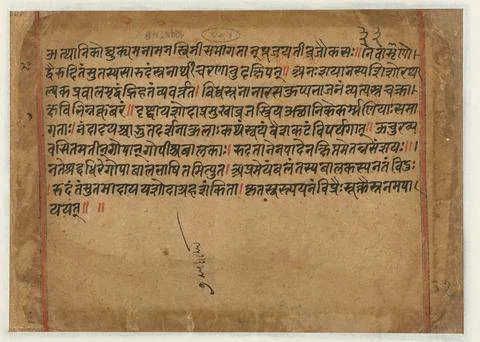 २३
औत्थानिकौत्सुक्यमनामनस्विनीसमागतान्पूजयतीव्रजौकसः॥नैवाशृणो।
द्वैरुदितंसुतस्यसारुदंस्तनार्थीचरणावुदक्षिपत्॥अधःशयानस्यशिशोरनो
ल्पकप्रवालमृद्वंघ्रिहतंव्यवर्त्तत॥विध्वस्तनानारसकुप्यभाजनंव्यत्यस्तचक्रा।
क्षविभिन्नकूबरं॥दृष्ट्वायशोदाप्रमुखाव्रजस्त्रियऔत्थानिकेकर्मणियाःसमा
गताः॥नंदादयश्चाद्भुतदर्शनाकुलाःकथंस्वयंवैशकटंविपर्यगात्॥ऊचुरव्य
वसितमतीन्गोपान्गोपीश्चबालकाः॥रुदतानेनपादेनक्षिप्तमेतन्नसंशयः॥।
नतेश्रद्दधिरेगोपाबालभाषितमित्युत॥अप्रमेयंबलंतस्यबालकस्यनतेविदुः
रुदंतंसुतमादाययशोदाग्रहशंकिता॥कृतस्वस्त्ययनंविप्रैःसूक्तैःस्तनमपा।
ययत्॥॥